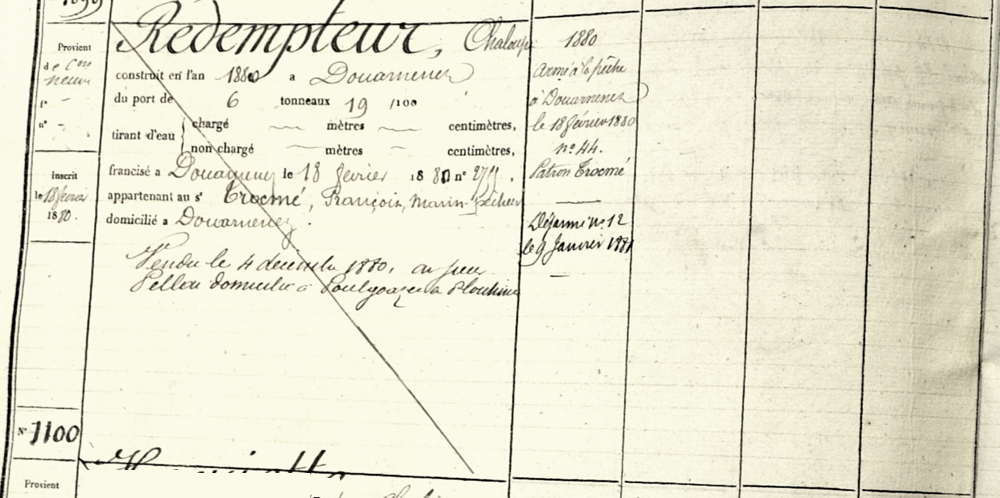 1099
Rédempteur, Chaloupe
Provient
de Con
neuve
fo -
no -
construit en l'an 1880 a Douarnenez
du port de 6 tonneaux 19 /100
tirant d'eau
chargé — mètres — centimètres,
non chargé — mètres — centimètres,
inscrit
le 18 février
1880.
francisé a Douarnenez le 18 février 1880 no
appartenant au sr Trocmé, François, Marin-Pêcheur
domicilié a Douarnenez.
Vendu le 4 décembre 1880, au sieur
Pellou domicilié à a
1880
Armé à la pêche
à Douarnenez
le 18 février 1880
no 44.
Patron Trocmé
Désarmé no 12
le 9 Janvier 1881
No 1100
Henriette
Provient